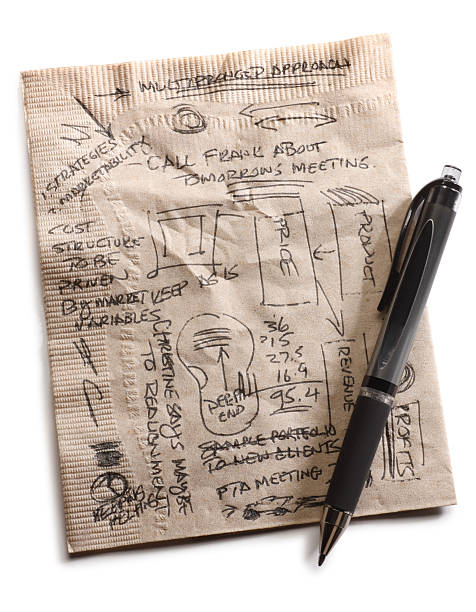 → MULTIPRONGED APPROACH
• STRATEGIES
• MARKETABILITY
- CALL FRANK ABOUT
TOMORROWS MEETING.
COST
STRUCTURE
TO BE
DRIVEN
BY MARKET KEEP
VARIABLES
AS IS
PRICE
PRODUCT
36
715
27.5
16.9
95.4
REVENUE
PROFITS
DEEP
END
CHRISTINE SAYS MAYBE
TO REDLINE
SAMPLE PORTFOLIO
TO NEW CLIENTS
PTA MEETING
HELPING